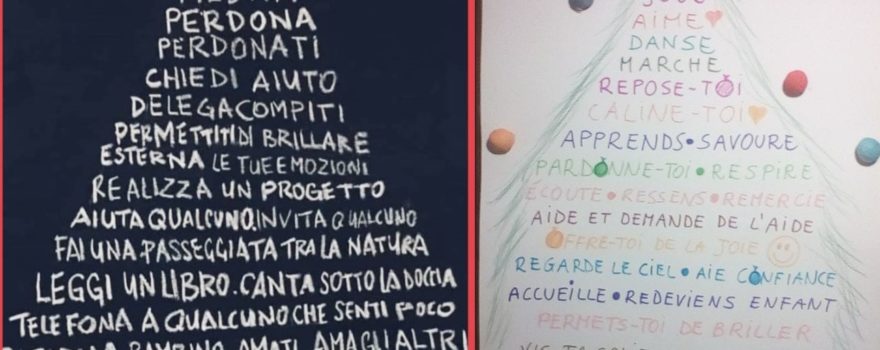 PERDONA
PERDONATI
CHIEDI AIUTO
DELEGA COMPITI
PERMETTITI DI BRILLARE
ESTERNA LE TUE EMOZIONI
REALIZZA UN PROGETTO
AIUTA QUALCUNO. INVITA QUALCUNO
FAI UNA PASSEGGIATA TRA LA NATURA
LEGGI UN LIBRO. CANTA SOTTO LA DOCCIA
TELEFONA A QUALCUNO CHE SENTI POCO
BAMBINO. AMATI. AMA GLI ALTRI
AIME
DANSE
MARCHE
REPOSE-TOI
CALINE-TOI
APPRENDS • SAVOURE
PARDONNE-TOI • RESPIRE
ECOUTE • RESSENS • REMERCIE
AIDE ET DEMANDE DE L'AIDE
OFFRE-TOI DE LA JOIE
REGARDE LE CIEL • AIE CONFIANCE
ACCUEILLE • REDEVIENS ENFANT
PERMETS-TOI DE BRILLER